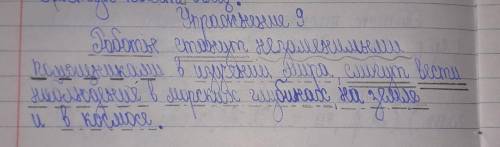 Упражнение 9
Роботы станут незаменимыми
помощниками в изучении мира, смогут вести
наблюдение в морских глубинах, на земле
и в космосе.